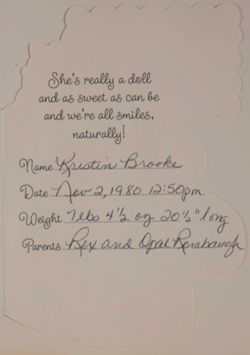 She's really a doll
and as sweet as can be
and we're all smiles,
naturally!
Name Kristin Brooke
Date Nov 2, 1980 12:50pm.
Weight 7lbs 4½ oz 20½" long
Parents Rex and Opal Rorabaugh